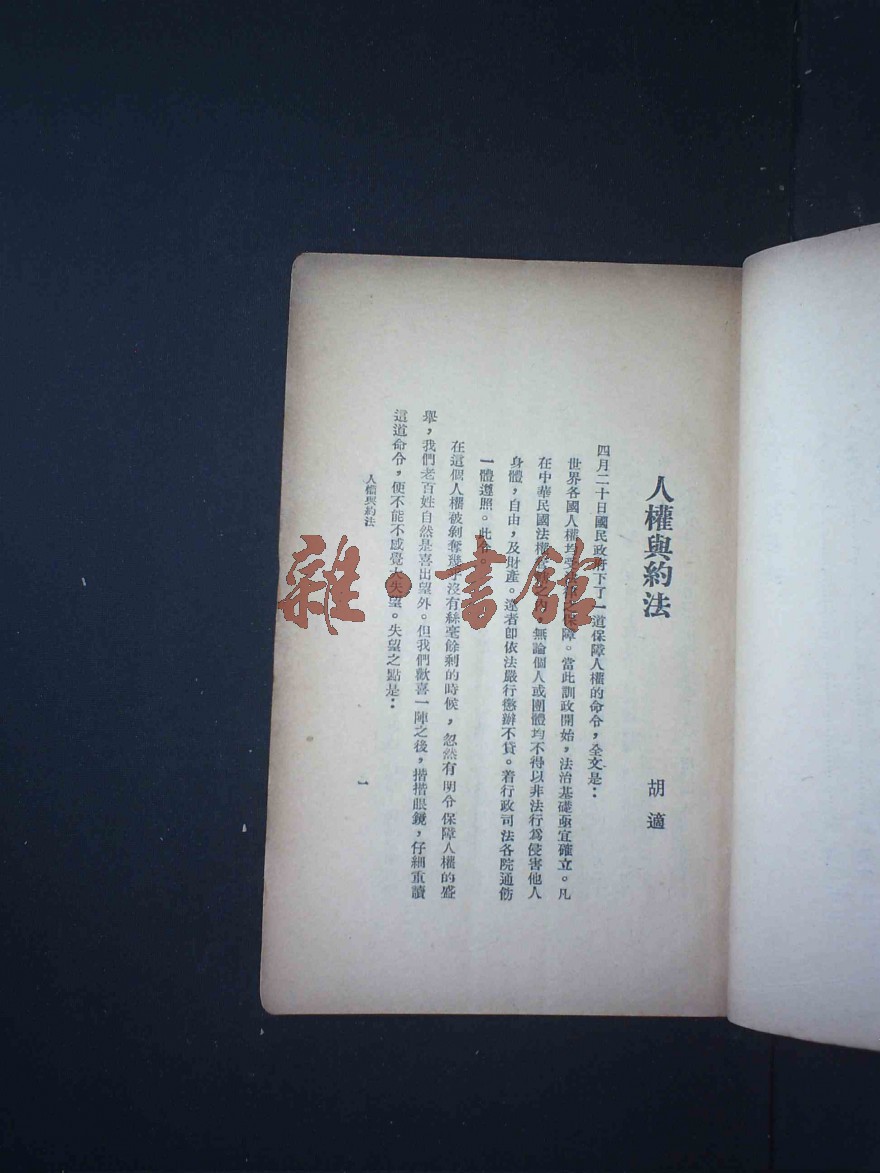 人權與約法
胡適
四月二十日國民政府下了一道保障人權的命令，全文是：
世界各國人權均受法律之保障。當此訓政開始，法治基礎亟宜確立。凡
在中華民國法權之內，無論個人或團體均不得以非法行為侵害他人
身體，自由，及財產。違者即依法嚴行懲辦不貸。着行政司法各院通飭
一體遵照。此令。
在這個人權被剝奪幾乎沒有絲毫餘剩的時候，忽然有明令保障人權的盛
舉，我們老百姓自然是喜出望外。但我們歡喜一陣之後，揩揩眼鏡，仔細重讀
這道命令，便不能不感覺大失望。失望之點是：
人權與約法
一
雜·書館